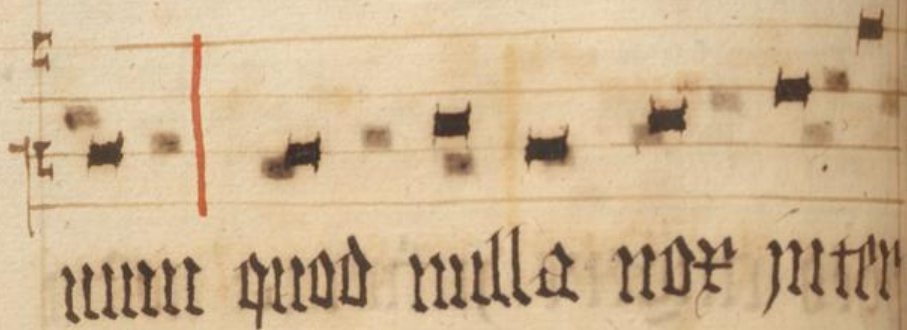 num quod nulla nox inter